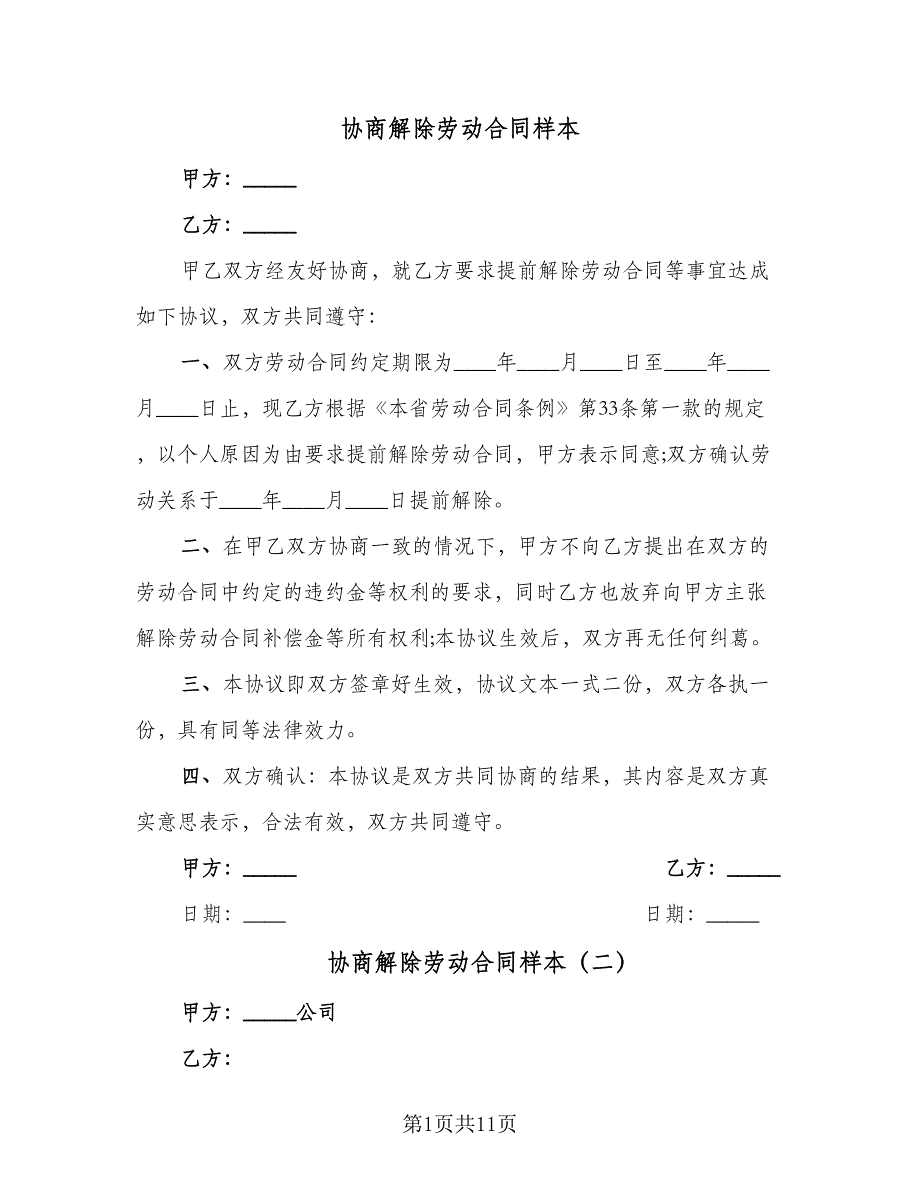 协商解除劳动合同样本
甲方：_____
乙方：_____
甲乙双方经友好协商，就乙方要求提前解除劳动合同等事宜达成
如下协议，双方共同遵守：
一、双方劳动合同约定期限为____年____月____日至____年____
月____日止，现乙方根据《本省劳动合同条例》第33条第一款的规定
，以个人原因为由要求提前解除劳动合同，甲方表示同意;双方确认劳
动关系于____年____月____日提前解除。
二、在甲乙双方协商一致的情况下，甲方不向乙方提出在双方的
劳动合同中约定的违约金等权利的要求，同时乙方也放弃向甲方主张
解除劳动合同补偿金等所有权利;本协议生效后，双方再无任何纠葛。
三、本协议即双方签章好生效，协议文本一式二份，双方各执一
份，具有同等法律效力。
四、双方确认：本协议是双方共同协商的结果，其内容是双方真
实意思表示，合法有效，双方共同遵守。
甲方：_____ 乙方：_____
日期：____ 日期：_____
协商解除劳动合同样本（二）
甲方：_____公司
乙方：
第1页共11页